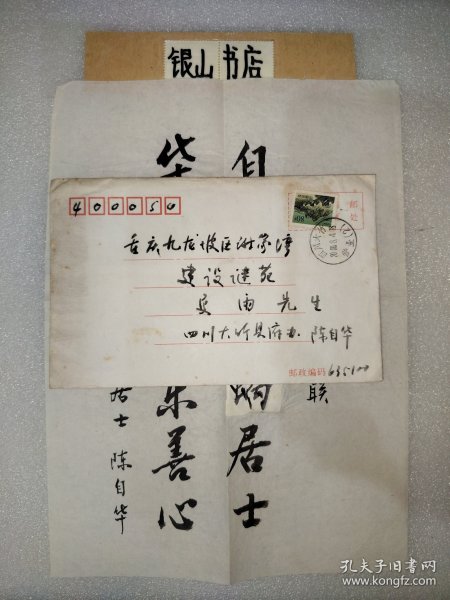 银山书店
400050
重庆九龙坡区谢家湾
建设谜苑
吴雨先生
四川大竹县府办 陈自华
邮政编码635100
自
居士
华
乐善心
联
居士 陈自华
孔夫子旧书网
www.kongfz.com